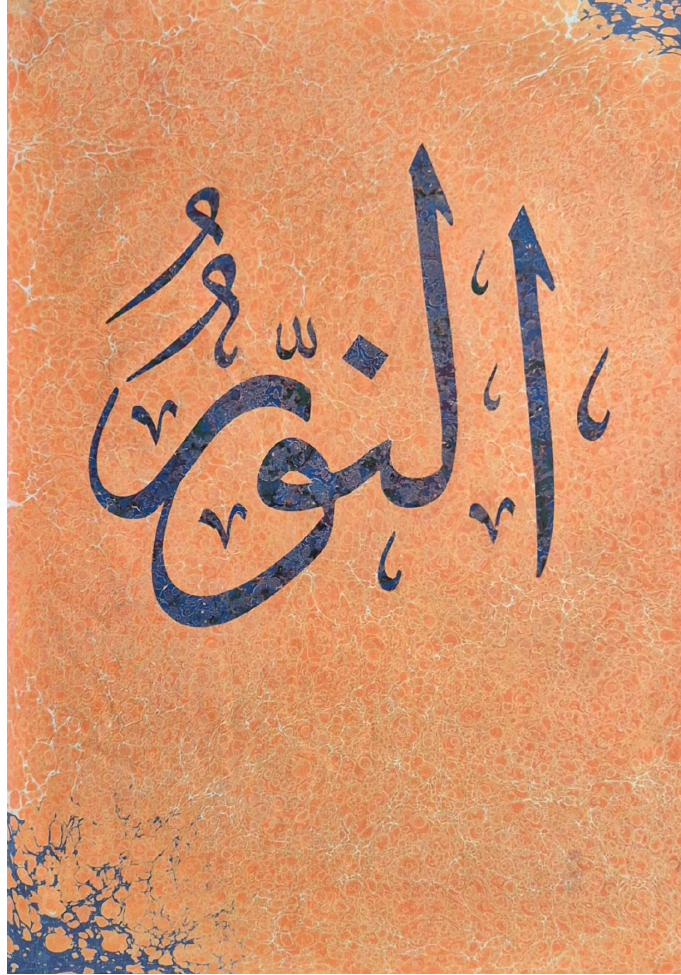 النّورُ